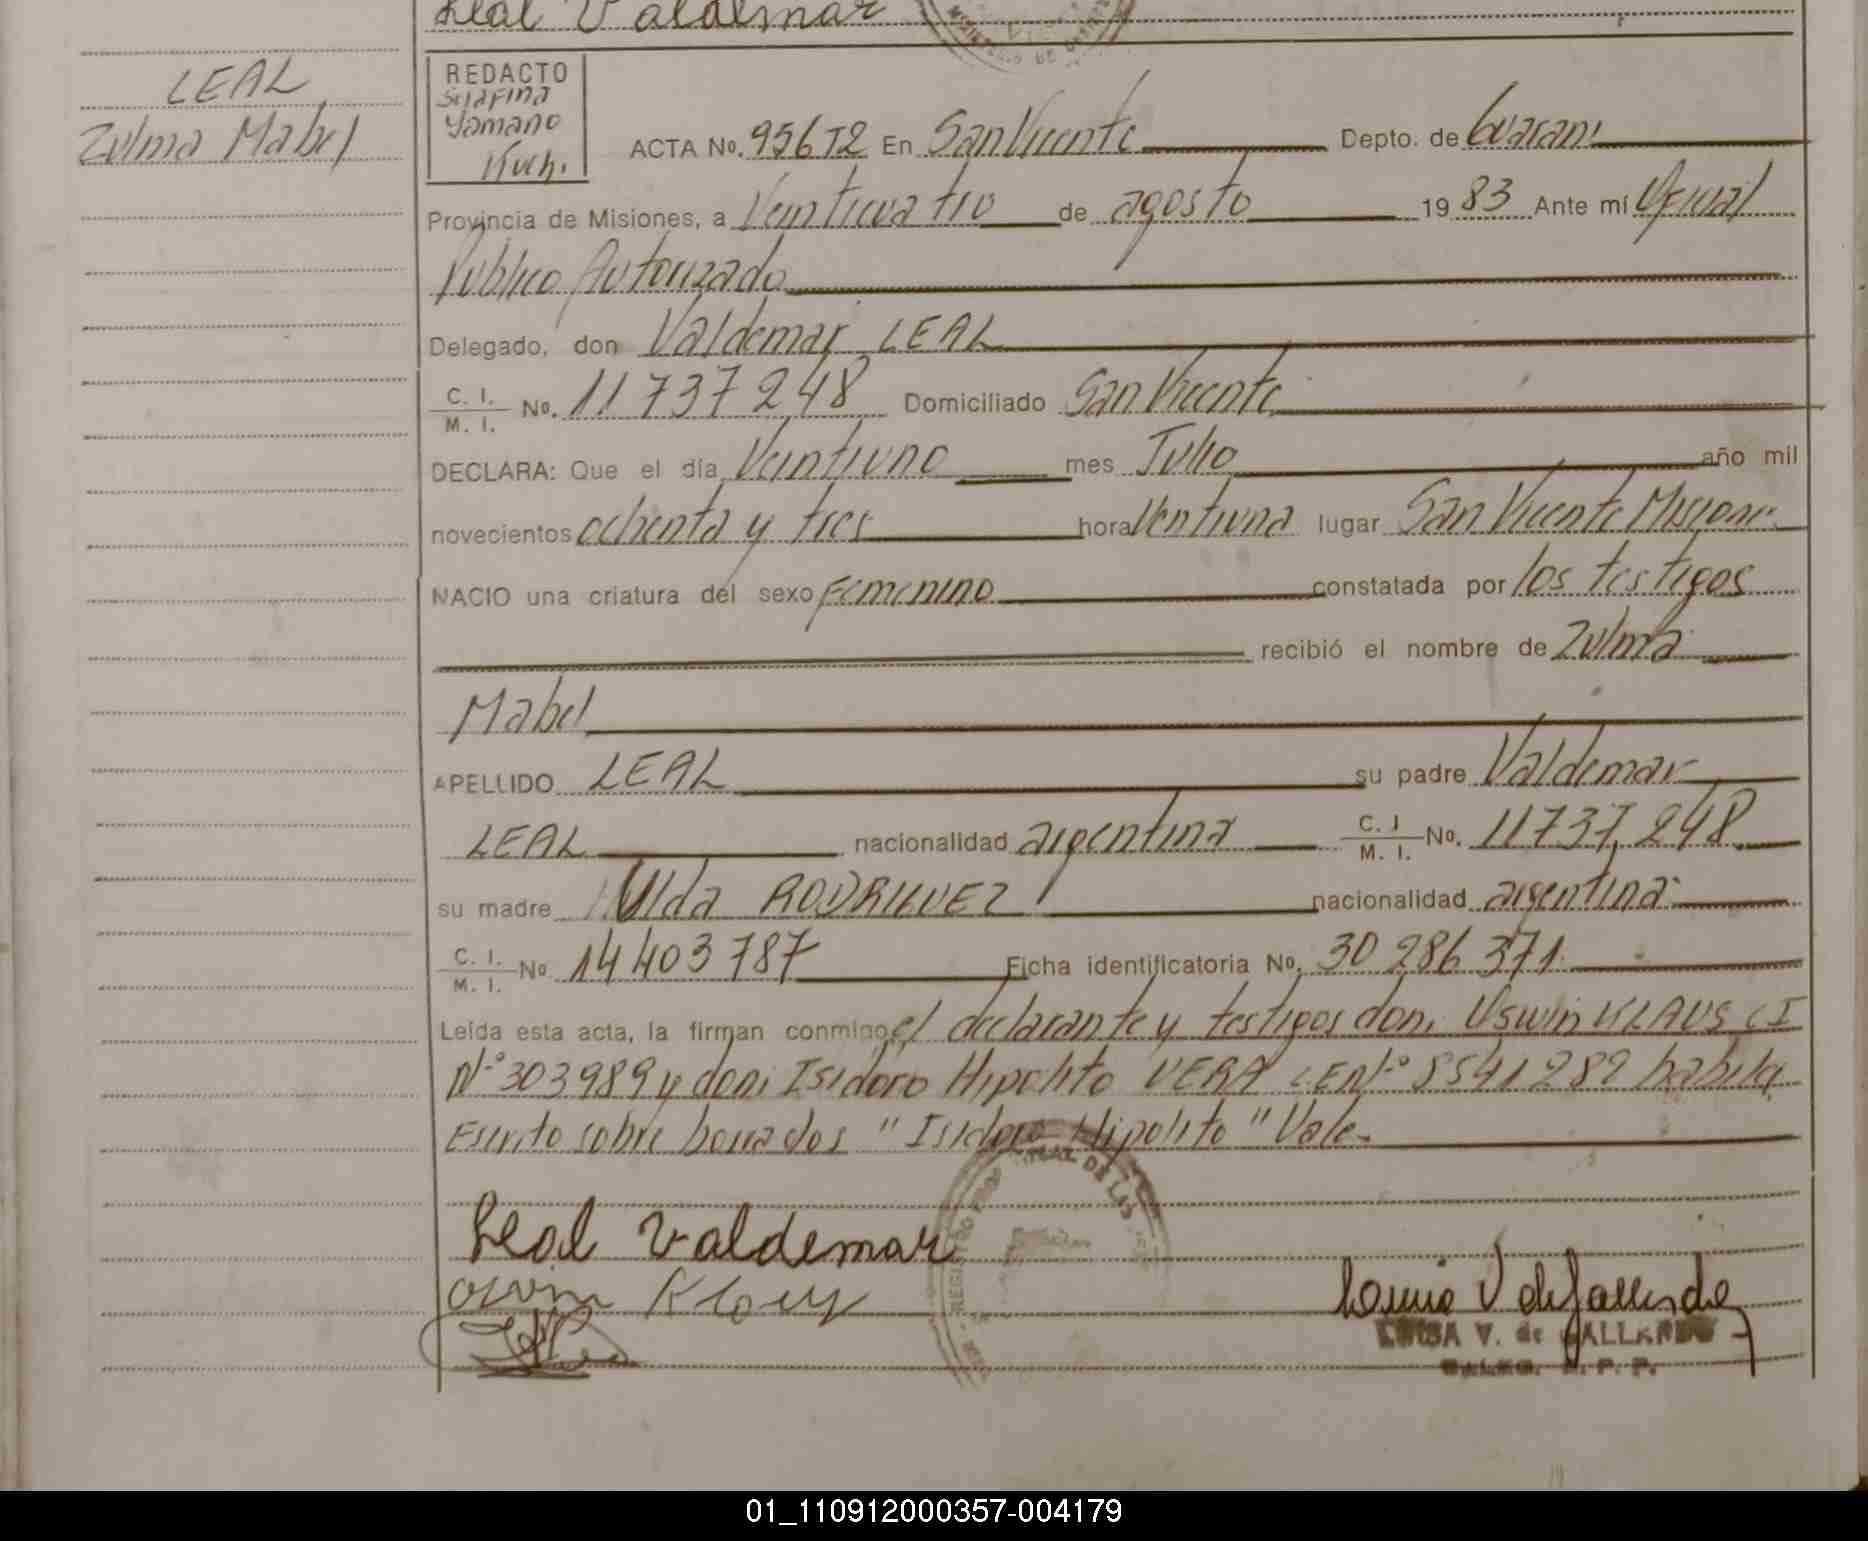 Leal Valdemar
LEAL
Zulma Mabel
REDACTO
Yamano
Kuch.
ACTA No. 956 T2 En San Vicente Depto. de Guarani
Provincia de Misiones, a Veinticuatro de agosto 1983 Ante mí Oficial
Publico Autorizado
Delegado, don Valdemar LEAL
C. I. / M. I. No. 11 737 248 Domiciliado San Vicente
DECLARA: Que el día Veintiuno mes Julio año mil
novecientos ochenta y tres hora Ventiuna lugar San Vicente Misiones
NACIO una criatura del sexo Femenino constatada por los testigos
recibió el nombre de Zulma
Mabel
APELLIDO LEAL su padre Valdemar
LEAL nacionalidad argentina C. I / M. I. No. 11737,248.
su madre Ulda RODRIGUEZ nacionalidad argentina
C. I. / M. I. No 14 403 787 Ficha identificatoria No. 30 286 371
Leída esta acta, la firman conmigo el declarante y testigos don; Oswin KLAUS CI
Nº 303989 y don; Isidoro Hipolito VERA LE Nº 8541282 habila
Escrito sobre borrados "Isidoro Hipolito" Vale.
Leal Valdemar
LUISA V. de GALLARDO